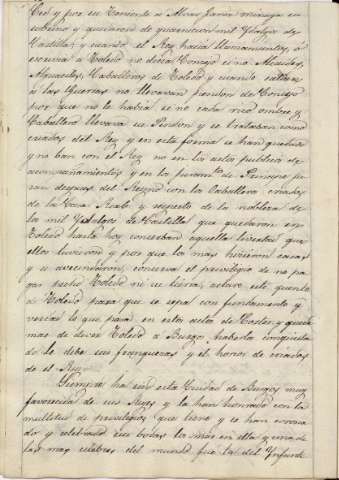 Cid y por su Teniente a Alvar Fanez minaya su
sobrino y quedaron de guarnicion mil Ydalgos de
Castilla y cuando el Rey hacia llamamientos, o
escrivia a Toledo no decia Concejo si no Alcaldes,
Alguaciles, Caballeros de Toledo y cuando salian
a las Guerras no llevaban pendon de Concejo
por que no le habia si no cada rico ombre y
Caballero llevava su Pendon y se trataban como
criados del Rey y en esta forma se han graduado
y no ban con el Rey no en los actos publicos de
acompañamientos y en la juram.to de Principe ju
ran despues del Reyno con los Caballeros criados
de la Casa Real y respecto de la nobleza de
los mil Ydalgos de Castilla que quedaron en
Toledo hasta hoy conserban aquella livertad que
ellos tuvieron y por que los mas hicieron casas
y se avecindaron, conserva el privilegio de no pa
gar pecho Toledo ni su tierra, este punto
de Toledo para que se sepa con fundamento y
verdad lo que pasa en estos actos de Cortes y quien
mas de decir Toledo a Burgos haberla conquista
do le debe sus franquezas y el honor de criados
de el Rey.
Siempre ha sido esta Ciudad de Burgos muy
favorecida de sus Reyes y la han honrado con la
multitud de privilegios que tiene y se han corona
do y celebrado sus bodas los mas en ella y una de
las mas celebres del mundo fue la del Ynfante